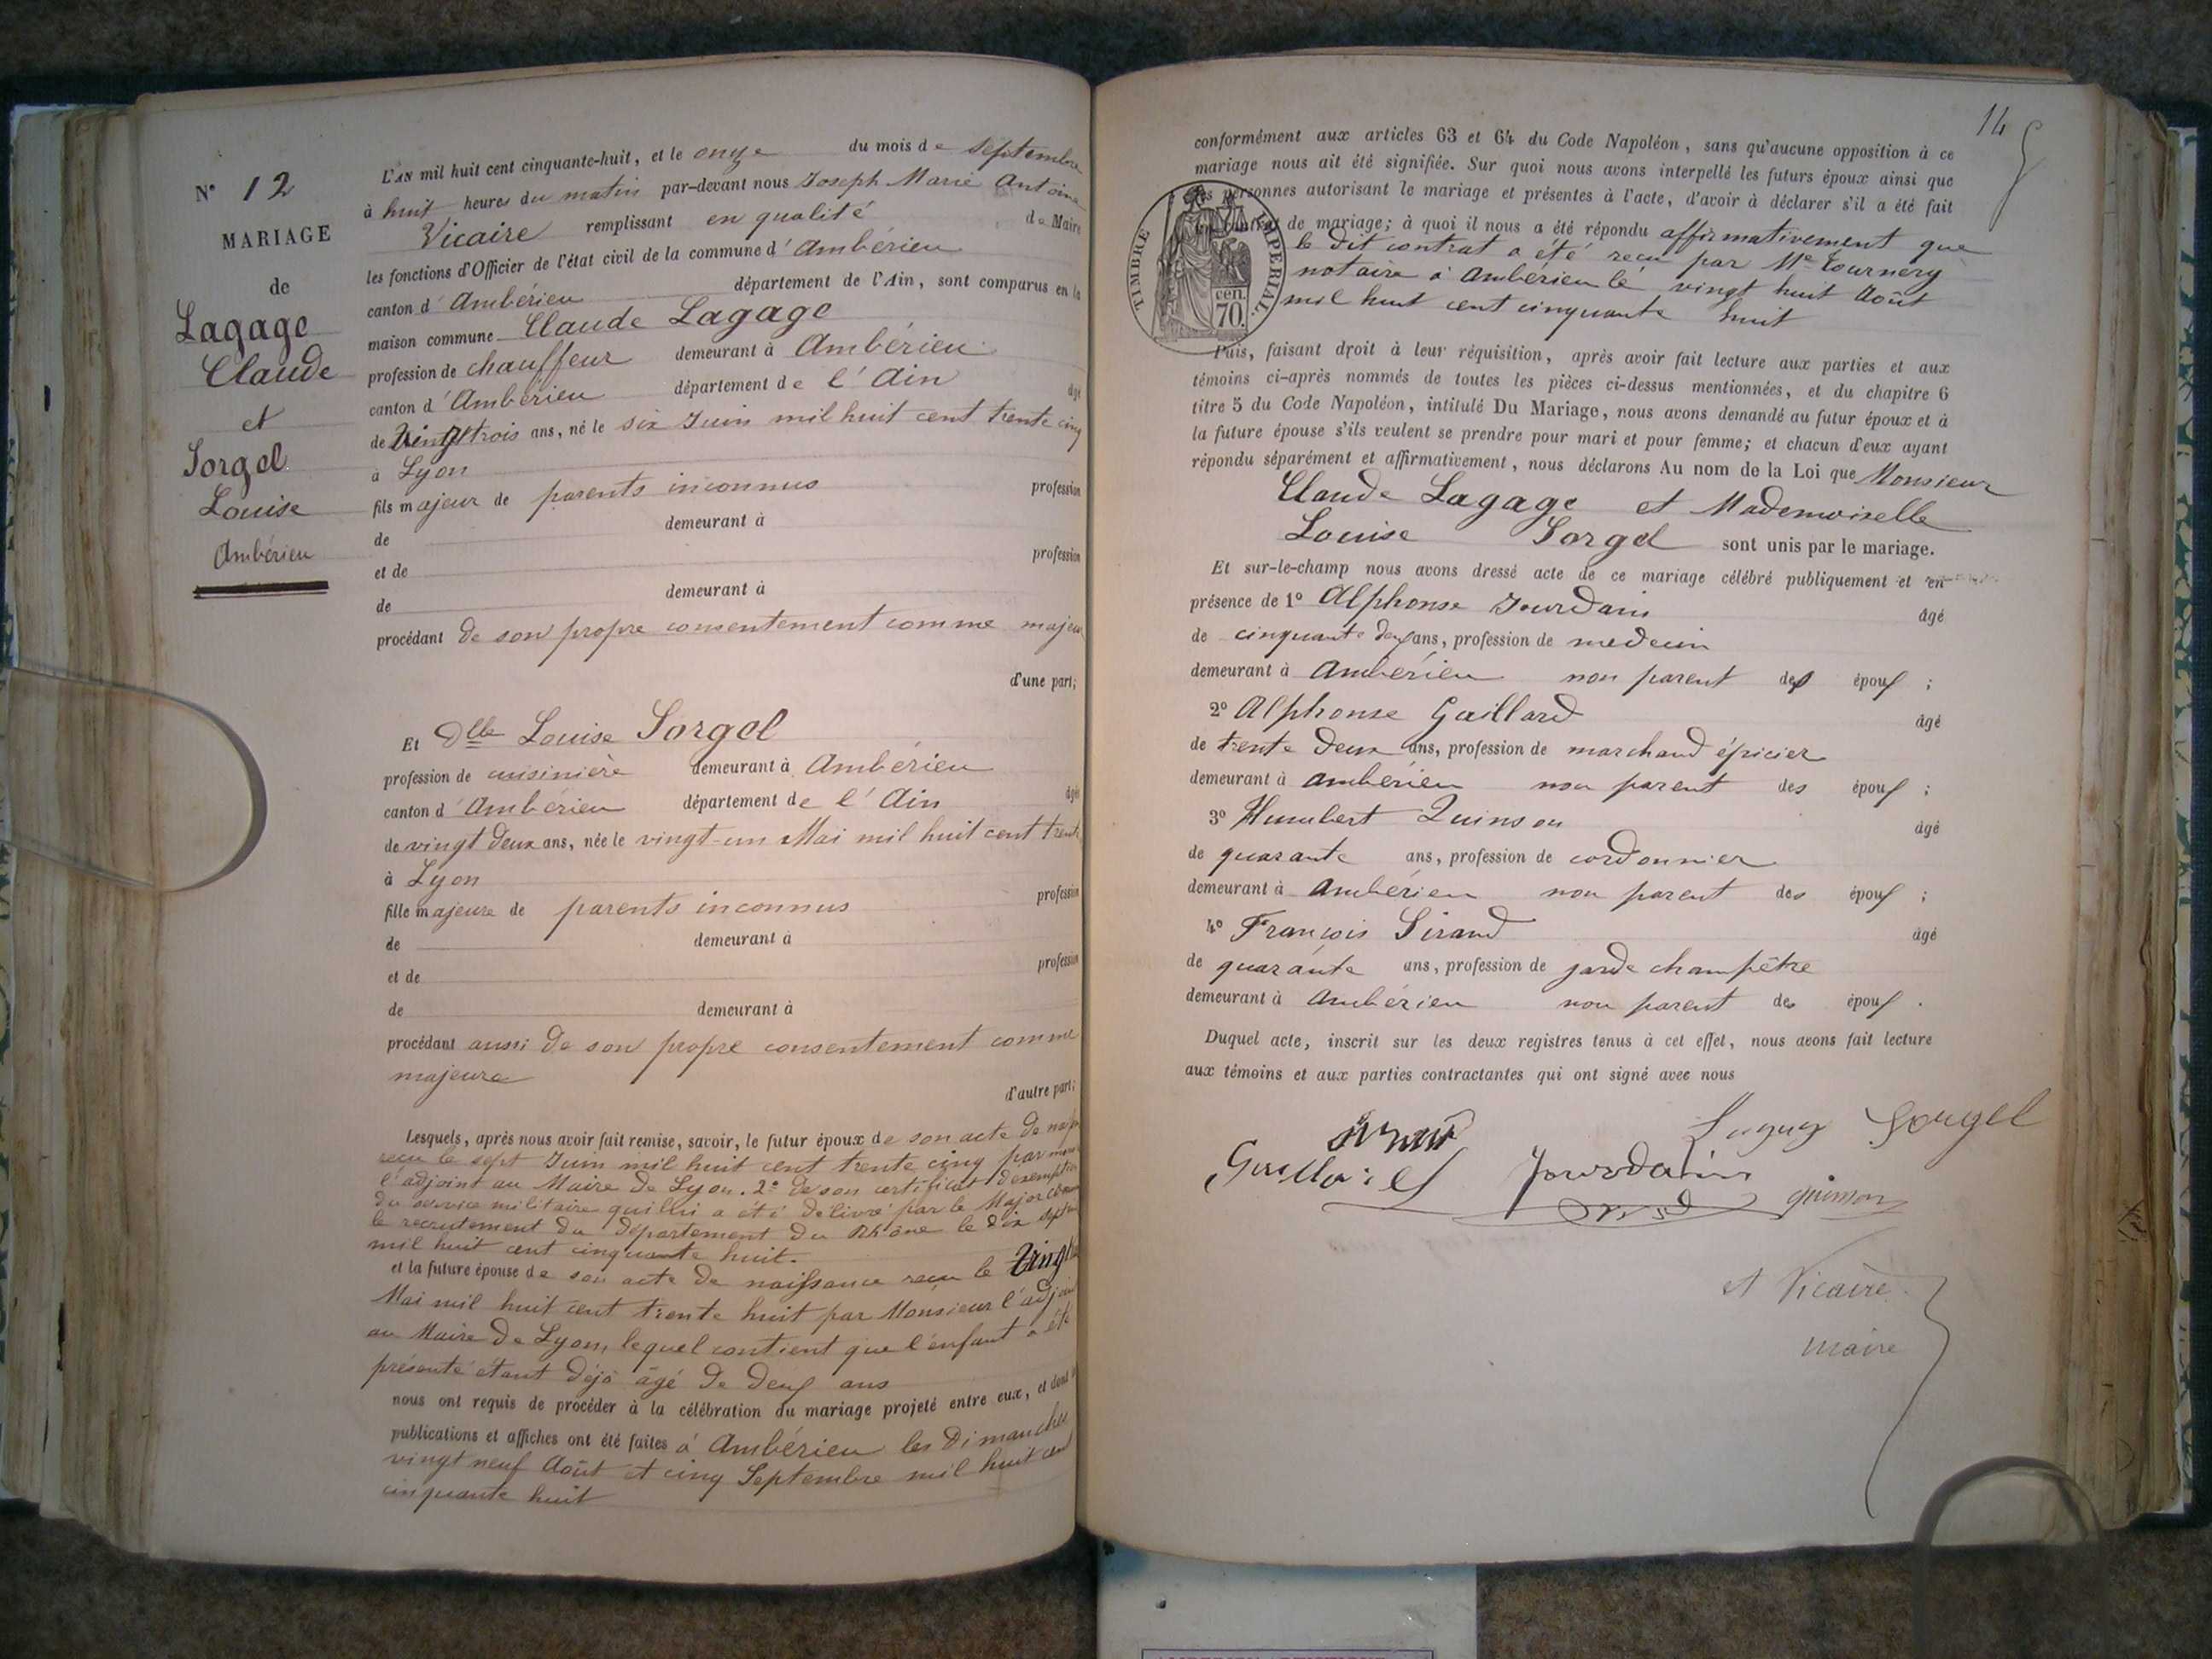 N° 12
MARIAGE
de
Lagage
Claude
et
Sorgel
Louise
Ambérieu
L'AN mil huit cent cinquante-huit, et le onze du mois de Septembre
à huit heures du matin par-devant nous Joseph Marie Antoine
Vicaire remplissant en qualité de Maire
les fonctions d'Officier de l'état civil de la commune d'Ambérieu
canton d'Ambérieu département de l'Ain, sont comparus en la
maison commune Claude Lagage
profession de chauffeur demeurant à Ambérieu
canton d'Ambérieu département de l'Ain âgé
de Vingt trois ans, né le six Juin mil huit cent trente cinq
à Lyon
fils majeur de parents inconnus profession
de demeurant à
et de profession
de demeurant à
procédant de son propre consentement comme majeur
d'une part;
Et Dlle Louise Sorgel
profession de cuisinière demeurant à Ambérieu
canton d'Ambérieu département de l'Ain âgée
de vingt deux ans, née le vingt-un Mai mil huit cent trente
à Lyon
fille majeure de parents inconnus profession
de demeurant à
et de profession
de demeurant à
procédant aussi de son propre consentement comme
majeure
d'autre part;
Lesquels, après nous avoir fait remise, savoir, le futur époux de son acte de
reçu le sept Juin mil huit cent trente cinq par
l'adjoint au Maire de Lyon. 2° de son certificat d'exemption
du service militaire qui lui a été délivré par le Major
le recrutement du département du Rhône le dix
mil huit cent cinquante huit.
et la future épouse de son acte de naissance reçu le
Mai mil huit cent trente huit par Monsieur l'adjoint
au Maire de Lyon, lequel contient que l'enfant a été
présenté étant déjà âgé de deux ans
nous ont requis de procéder à la célébration du mariage projeté entre eux, et dont
publications et affiches ont été faites à Ambérieu les Dimanches
vingt neuf Août et cinq Septembre mil huit cent
cinquante huit
14
conformément aux articles 63 et 64 du Code Napoléon, sans qu'aucune opposition à ce
mariage nous ait été signifiée. Sur quoi nous avons interpellé les futurs époux ainsi que
les personnes autorisant le mariage et présentes à l'acte, d'avoir à déclarer s'il a été fait
un contrat de mariage; à quoi il nous a été répondu affirmativement que
le dit contrat a été reçu par Me Tournery
notaire à Ambérieu le vingt huit Août
mil huit cent cinquante huit
TIMBRE IMPERIAL.
cen.
70.
Puis, faisant droit à leur réquisition, après avoir fait lecture aux parties et aux
témoins ci-après nommés de toutes les pièces ci-dessus mentionnées, et du chapitre 6
titre 5 du Code Napoléon, intitulé Du Mariage, nous avons demandé au futur époux et à
la future épouse s'ils veulent se prendre pour mari et pour femme; et chacun d'eux ayant
répondu séparément et affirmativement, nous déclarons Au nom de la Loi que Monsieur
Claude Lagage et Mademoiselle
Louise Sorgel sont unis par le mariage.
Et sur-le-champ nous avons dressé acte de ce mariage célébré publiquement et en
présence de 1° Alphonse Jourdain âgé
de cinquante deux ans, profession de medecin
demeurant à Ambérieu non parent des époux ;
2° Alphonse Gaillard âgé
de trente deux ans, profession de marchand épicier
demeurant à Ambérieu non parent des époux ;
3° Humbert Quinson âgé
de quarante ans, profession de cordonnier
demeurant à Ambérieu non parent des époux ;
4° François Sirand âgé
de quarante ans, profession de garde champêtre
demeurant à Ambérieu non parent des époux .
Duquel acte, inscrit sur les deux registres tenus à cet effet, nous avons fait lecture
aux témoins et aux parties contractantes qui ont signé avec nous
Sorgel
Jourdain
quinson
et Vicaire
maire